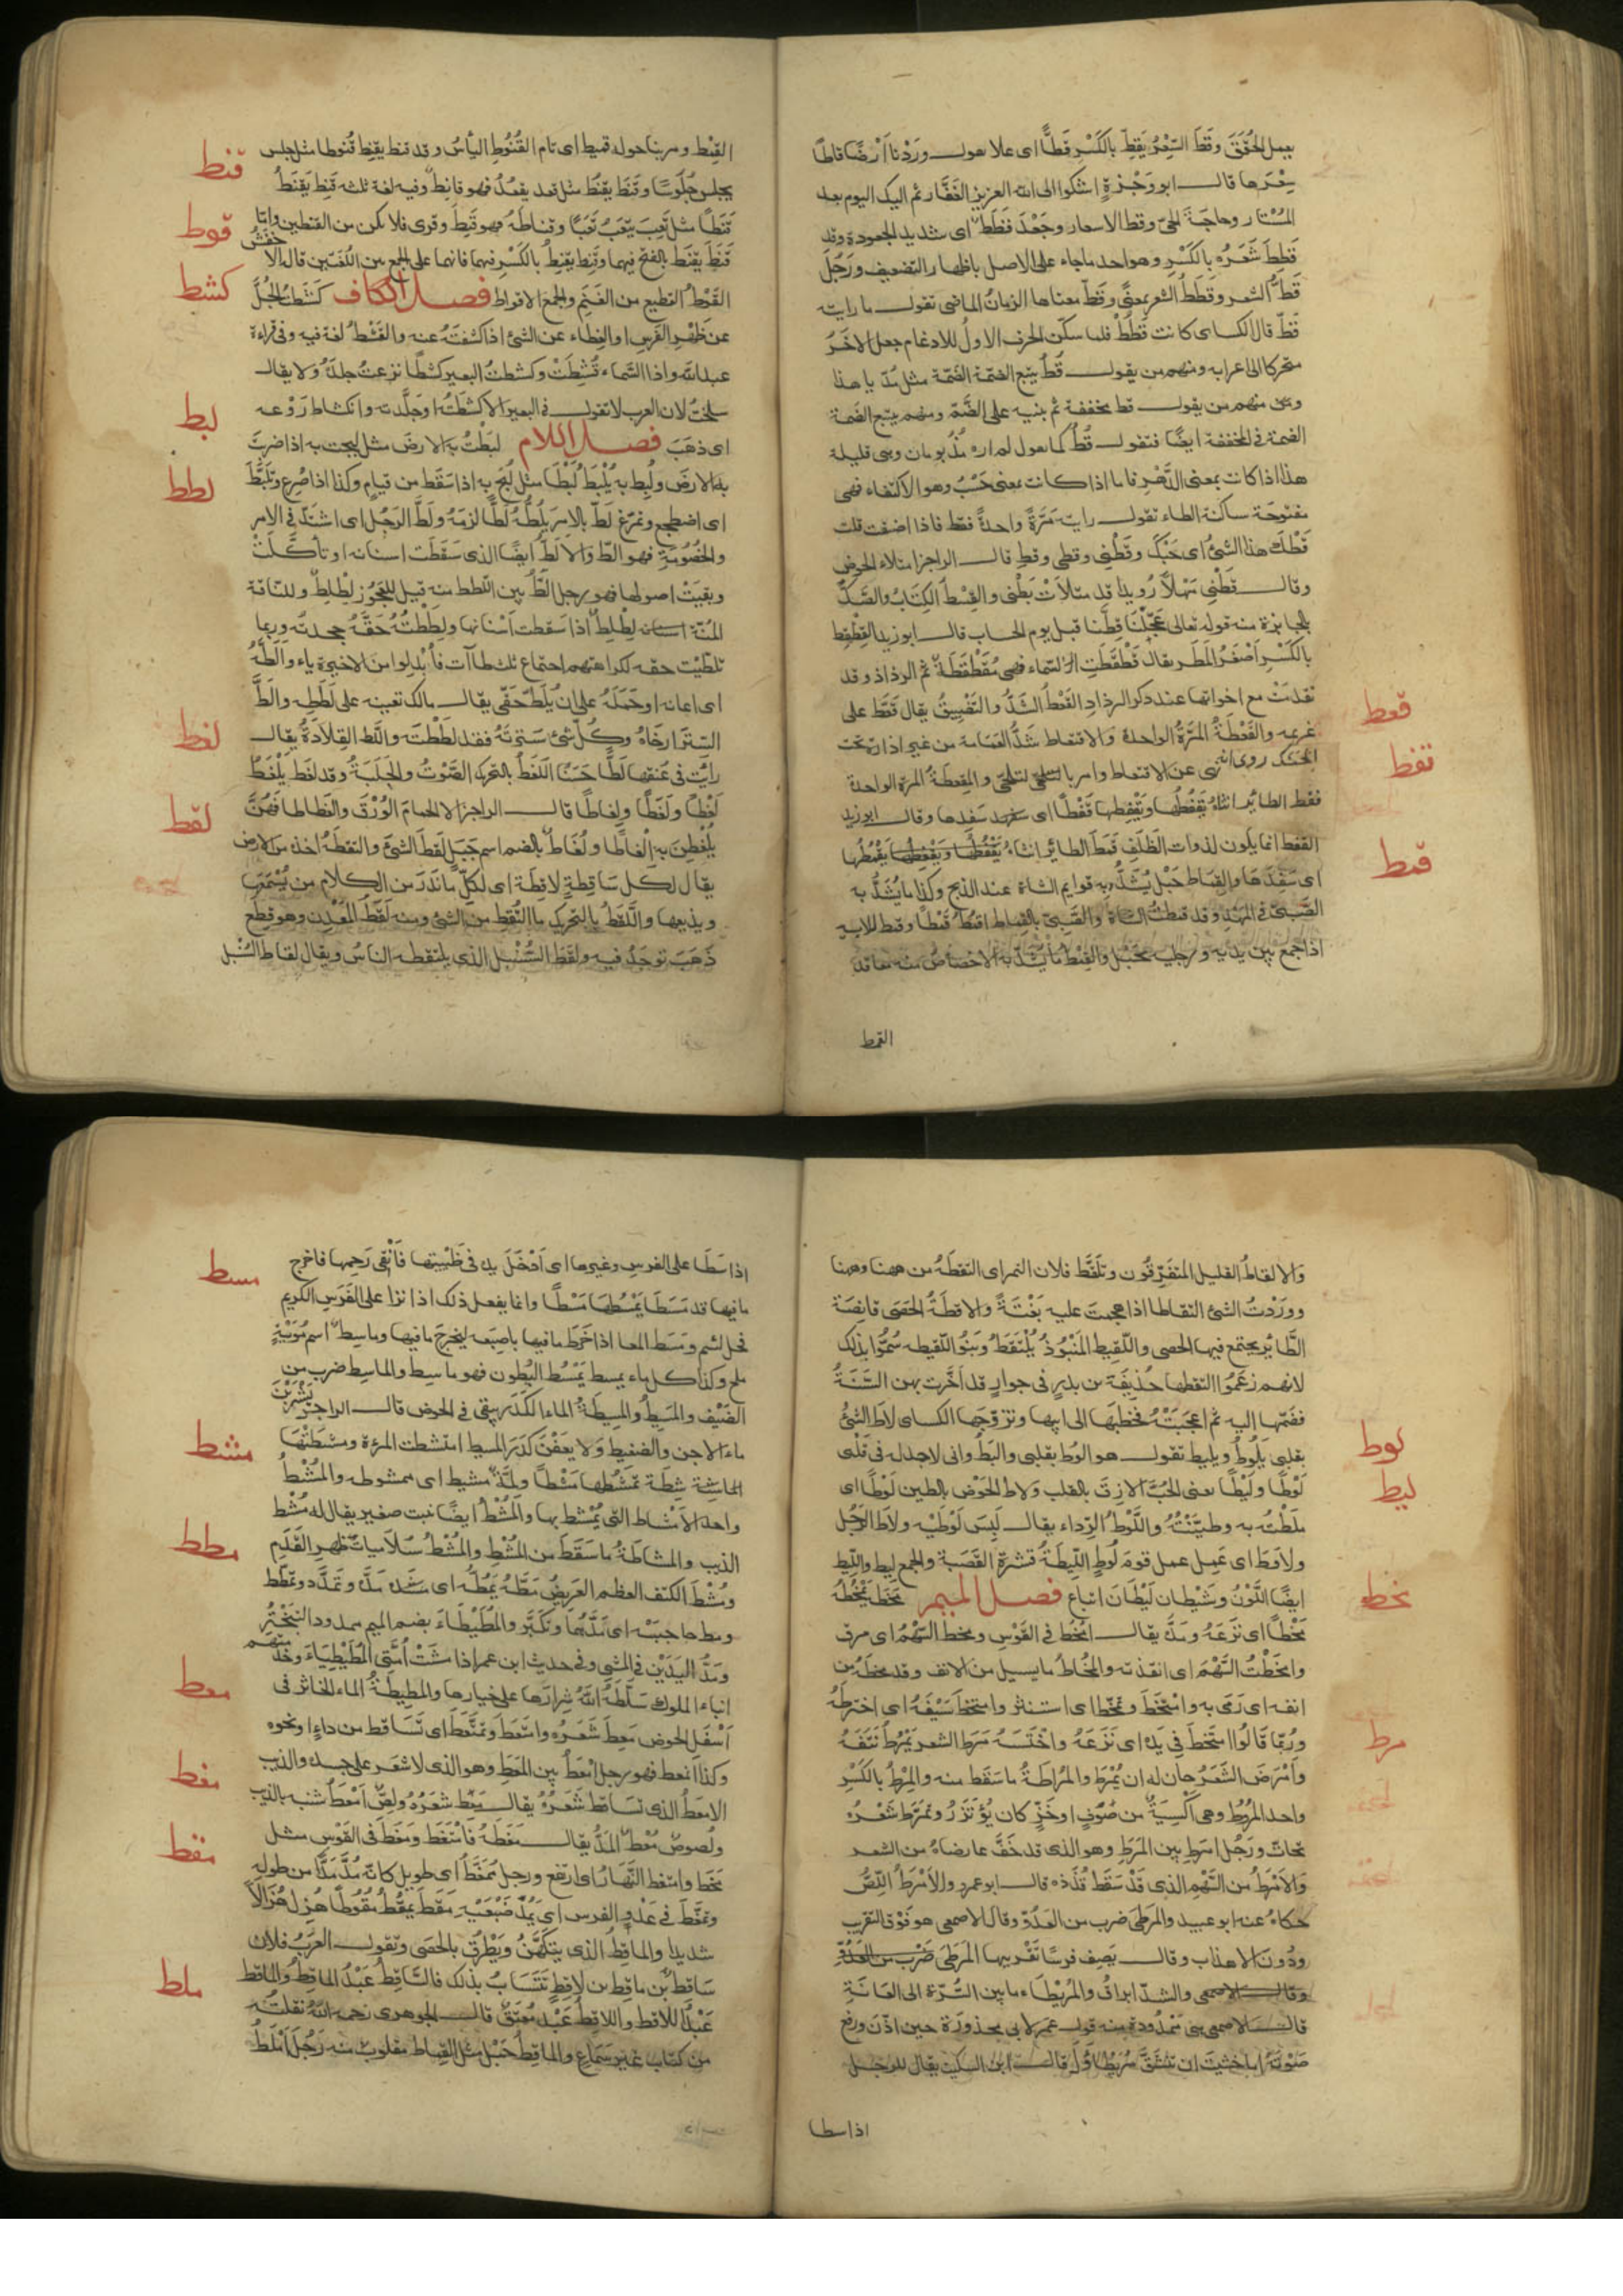 يعمل الحُقَقَ وقَطَّ السِّعْرُ يَقِطُّ بالكَسْرِ قَطًّا اى غلا يقول وَرَدْنَا اَرْضًا قاطًّا
سِعْرها قال ابو وَجْزة اشكوا الى الله العزيز الغفّار ثم اليك اليوم بعد
المُسْتار وحاجة الحىّ وقط الاسعار وجَعْدٌ قَطَطٌ اى شديد الجعودة وقد
قَطِطَ شَعَرُه بالكَسْر وهو احد ما جاء على الاصل باظهار التضعيف ورَجُلٌ
قَطُّ الشعر وقَطَطُ الشعر بمعنًى وقَطُّ معناها الزمانُ الماضى تقول ما رايته
قَطُّ قال الكساى كانت قَطُطْ فلما سكّن الحرف الاولُ للادغام جعل الاخَرُ
متحركا الى اعرابه ومنهم من يقول قُطُّ يتبع الضمّة الضّمّة مثل مُدُّ يا هذا
ومنهم من يقول قط مخففة ثم يبنيه على الضّمّ ومنهم يتبع الضمة
الضمة فى المخففة ايضًا فتقول قُطُ كما يقول لم اره مُذُ يومان وهى قليلة
هذا اذا كانت بمعنى الدَّهْر فاما اذا كانت بمعنى حَسْبُ وهو الاكتفاء فهى
مفتوحة ساكنة الطاء تقول رايته مَرَّةً واحدةً فقط فاذا اضفت قلت
قَطْكَ هذا الشئُ اى حَسْبُكَ وقَطْنِى وقطى وقط قال الراجز امتلاء الحوض
وقال قَطْنِى مَهْلًا رُوَيدًا قد مَلَأْتَ بَطْنى والقِطُّ الكِتَابُ والصَّكُّ
بالجايزة منه قوله تعالى عَجِّلْ لَنا قِطَّنا قبل يوم الحساب قال ابو زيد القِطْقِط
بالكَسْرِ اَصْغَرُ المَطَر يقال قَطْقَطَتِ السّماء فهى مُقَطْقِطَةٌ ثم الرذاذ وقد
تقدمَتْ مع اخواتها عند ذكر الرذاذِ القَعْطُ الشَّدُّ والتَّضْيِيقُ يقال قَعَطَ على
غريمه والقَعْطَةُ المَرَّةُ الواحدة والاقتعاط شَدُّ العمَامة من غير ادارة تحت
الحَنَك روى انه نهى عن الاقتعاط وامر بالتلحّى والمِقْعَطَةُ المرة الواحدة
قفط الطايُر انثاه يَقفُطُها ويَقْفِطها قَفْطًا اى سفدها وقال ابو زيد
القفط انما يكون لذوات الظِّلف قَمَطَ الطائر انثاه يَقْمُطُها ويَقْمِطُها
اى سَفَدَهَا والقِمَاط حَبْل يُشَدُّ به قوايم الشاة عند الذبح وكذا ما يُشَدُّ به
الصَّبىُّ فى المَهْدِ وقد قمطتُ الشاةَ والصَّبِىَّ بالقِماط اقمُط قَمْطًا وقمط للاسير
اذا جمع بين يديه ورجليه بحَبْلٍ والقِمْطُ ما يُشَدُّ به الاخصاصُ منه معاقد
القمط
قعط
قفط
قمط
القِمْط ومر بنا حول قميط اى تام القُنُوطِ الياسُ وقد قنط يقنِط قُنوطا مثل جلس
يجلس جُلُوسًا وقَنَط يقنُط مثل قعد يقعُدُ فهو قانِطٌ وفيه لغة ثلثه قَنِطَ يَقْنَطُ
قَنَطًا مثل تَعِبَ يتعَبُ تَعَبًا وقناطةً فهو قَنِطٌ وقرى فلا تكن من القنطين واما
قَنَطَ يَقْنَطُ بالفتح فيهما وقَنِط يقنِطُ بالكَسْرِ فيهما فانما على الجمع بين اللغتين قاله الاخفش
القَوْطُ القطيع من الغَنَم والجمع الاقواط فصل الكاف كَشَطتُ الجُلَّ
عن ظَهْرِ الفَرَسِ او الغِطاء عن الشئ اذا كشفتَهُ عنه والقَشْطُ لغة فيه وفى قراءة
عبد الله واذا السّماء قُشِطَتْ وكشطتُ البعير كَشْطًا نزعتُ جلدَه ولا يقال
سلختُ لان العرب لا تقول فى البعير الا كَشَطتُه او جَلَّدته وانكشاط رَوْعه
اى ذهَبَ فصل اللام لَبَطْتُ به الارضَ مثل لبجت به اذا ضربتَ
به الارضَ ولُبِط به يُلْبَطُ لَبْطًا مثل لُبِجَ به اذا سَقَط من قيامٍ وكذا اذا صُرِعَ وتَلَبَّطَ
اى اضطجع وتمرّغ لَطَّ بالامر يَلُطُّه لَطًّا لزمَهُ ولَطَّ الرَجُل اى اشتدّ فى الامر
والخُصُومَةِ فهو الطّ والالَطُّ ايضًا الذى سَقَطَت اسنانه او تاكَّلَتْ
وبقيَتْ اصولها فهو رجل الَطُّ بين اللطط منه قيل للعَجُوز لِطْلِطٌ وللنّاقة
المُسنّة لِطْلِطٌ اذا سَقطت اَسْنانها ولَطِطْتُهُ حَقَّهُ جحدته وربما
تلطّيت حقه لكراهتهم اجتماع ثلث طاآت فأبْدِلوا من الاخيرة ياء والَطَّهُ
اى اعانه او حَمَلَهُ على ان يُلطّ حَقّى يقال مالك تعينه على لَطَطِه والَطَّ
السِّتْرَ ارخَاهُ وكلّ شئ سَتَرتَهُ فقد لَطَطْتَه واللّط القِلادَةُ يقال
رايتُ فى عُنقها لَطًّا حَسَنًا اللَغَطُ بالتحريك الصَّوْتُ والجَلَبَةُ وقد لغَط يَلْغَطُ
لَغْطًا ولَغَطًا ولِغاطًا قال الراجز الا الحمامَ الوُرْقَ والغَطاطا فهُنَّ
يُلْغِطن به اِلْغاطًا ولُغَاطٌ بالضم اسم جَبَلٍ لقَطَ الشئَ والتقطَهُ اخذ من الارض
يقال لكل سَاقِطةٍ لاقِطَة اى لكلّ ما نَدَرَ من الكلام من يُسْمَعُها
ويذيعها واللَّقَطُ بالتحريك ما التُقِط من الشئ ومنه لَقَطُ المَعْدِن وهو قِطَع
ذَهَبٍ توجَدُ فيه ولَقَطُ السُّنْبل الذى يلتقطه الناسُ ويقال لقاط السُنبل
قنط
قوط
كشط
لبط
لطط
لغط
لقط
وَالالقاطُ القليل المتفرّقُون وتَلَقَّط فلان التمر اى التقطَهُ من ههنا وههنا
ووَرَدْتُ الشئ التقاطا اذا هجمتَ عليه بَغْتَةً ولاقِطَةُ الحَصَى قانِصَة
الطَّائر يجتمع فيها الحصى واللّقيط المَنْبُوذُ يُلْتَقَطُ وبَنُو اللّقيطه سُمُّوا بذلك
لانهم زعَمُوا التقطها حُذَيفَة بن بدرٍ فى جوارٍ قد اضرّت بهن السَّنَةُ
فضَمّها اليه ثم اعجَبَتْهُ فخطَبَها الى ابيها وتزوّجها الكساى لاطَ الشئُ
بقلبى يَلُوطُ ويليط تقول هو الوَط بقلبى واليط وانى لاجد له فى قَلْبى
لَوْطًا ولَيْطًا يعنى الحُبَّ اللازِقَ بالقلب ولاط الحَوْض بالطين لَوْطًا اى
ملَطْتُه به وطيَّنْتُه واللَّوْطُ الرِّداء يقال لَبِسَ لَوْطَيْه ولاط الرّجُل
ولاوَط اى عَمِل عمل قوم لُوطٍ اللّيطَةُ قشرة القَصَبة والجمع لِيط واللّيط
ايضًا اللَّوْنُ وشَيْطان لَيْطَان اتباع فصل الميم مخَط يَمْخُطُه
مَخْطًا اى نَزَعَهُ ومَدّه يقال امخَط فى القَوْسِ ومخط السّهْمُ اى مرق
وامخَطْتُ السَّهْمَ اى انفذته والمُخَاطُ ما يسيل من الانف وقد مخطه من
انفه اى رَمَى به وامْتَخَطَ وتمخّط اى استنثر وامتخط سَيْفَهُ اى اخترطَهُ
ورُبّما قَالُوا امتَخطَ ما فى يَده اى نَزَعَهُ واخْتَلَسَه مَرَط الشعر يَمْرُطُ نَتَفَهُ
وَاَمْرَطَ الشّعَرُ حان له ان يُمْرَط والمُراطَةُ ما سَقَط منه والمِرْطُ بالكَسْرِ
واحد المُرُوط وهى اَكْسِيَةٌ من صُوفٍ او خَزٍّ كان يُؤتَزَرُ وتَمَرَّط شَعْرُه
تحاتّ ورَجُل امرَط بين المَرَطِ وهو الذى قد خَفَّ عارضاهُ من الشعر
وَالاَمْرَطُ من السَّهْم الذى قَدْ سَقَط قُذَذه قال ابو عمرو والاَمْرَطُ اللِّصُّ
حكاه عنه ابو عبيد والمَرَطَى ضرب من العَدْوِ وقال الاصمعى هو فَوْق التقريب
ودُونَ الاهذاب وقال يَصِفُ فرسًا تَقْريبها المَرَطَى
والشدّ ابراقُ والمُرَيْطَاء ما بين السُّرَّة الى العَانَةِ
قال الاصمعى هى مَمْدُودةٌ منه قول عمر لابى محذورة حين اذّن ورفع
صَوْتَهُ اما خشِيتَ ان تنشَقَّ مُرَيْطاؤُكَ قال ابن السكيت يقال للرجل
اذا سطا
لوط
ليط
مخط
مرط
اذا سَطَا على الفرس وغيرها اى اَدْخَلَ يده فى ظَبْيتها فَأَنْقَى رَحِمها فاخرج
ما فيها قد مَسَطَهَا يَمْسُطُها مَسْطًا وانما يفعل ذلك اذا نزا على الفَرَسِ الكريم
فحل لئيم ومَسَط المعا اذا خَرَط ما فيها باصبَعه ليخرجَ ما فيها وماسِطٌ اسم مُوَيْهٍ
ملح وكذا كل ماء يمسط يَمْسُط البُطون فهو ماسِط والماسِط ضرب من
الصَّيْف والمَسِيطُ والمَسِيطَةُ الماءُ الكَدَرُ يبقى فى الحوض قال الراجز يَشْرَبْنَ
ماء الاجن والضغيط ولا يعَفْنَ كدَرَ المسيط امتشطت المرءة ومشَطَتْها
الماشِطَة تَمْشُطها مَشْطًا ولِمَّةٌ مشيط اى ممشوطه والمُشْطُ
واحد الاَمْشاط التى يُمْشط بها والمُشْطُ ايضًا نبت صغير يقال له مُشْط
الذيب والمشاطَةُ ما سَقَطَ من المُشْطِ والمُشْطُ سُلاميات ظَهر القَدَمِ
ومُشْطُ الكتف العظم العَريضُ مَطَّهُ يَمُطُّه اى مَدَّه وتَمَدَّد وتمطّط
ومط حاجبَيْه اى مَدَّهُمَا وتَكَبَّر والمُطَيْطَاءُ بضم الميم ممدود التبَخْتُرُ
ومَدُّ اليَدَيْن فى المشى وفى حديث ابن عمر اذا مشَتْ اُمَّتى المُطَيْطِيَاءَ وخَدَمَتْهُم
ابناء الملوك سَلَّطَ اللهُ شِرارَها على خيارها والمَطيطَةُ الماء الخاثر فى
اَسْفَل الحوض مَعِطَ شَعَرُه وامتعَطَ وتمَعَّطَ اى تَسَاقط من داءٍ او نحوه
وكذا انمعط فهو رجل امْعَطُ بين المَعَطِ وهو الذى لا شعَر على جسده والذيب
الامعَطُ الذى تساقَط شَعَرُهُ يقال مَعِط شعَرُه ولِصٌّ اَمْعَطُ شبّه بالذيب
ولصوص مُعْط المَغْطُ المَدُّ يقال مَغَطَهُ فامْتغَطَ ومَغَطَ فى القَوْسِ مثل
مَخَط وامتغط النَّهَارُ اى ارتفع ورجل مُمَّغِطٌ اى طويل كانّه مُدَّ مَدًّا من طولِه
وتمغَّط فى عَدْوِ الفرس اى يَمُدُّ ضَبْعَيْهِ مَقَطَ يَمقُطُ مُقُوطًا هُزِل هُزَالًا
شديدا والماقِطُ الذى يتكَهَّنُ ويَطْرُقُ بالحَصَى وتقول العَرَبُ فلان
سَاقِطُ بْن ماقِطِ بن لاقِطٍ تتَسَابُّ بذلك فالسّاقِطُ عَبْدُ الماقِط والماقِط
عَبْدُ اللاقط واللاقِطُ عَبْدٌ مُعْتَقٌ قال الجوهرى رحمه اللهُ نقلتُه
من كتاب غير سَمَاعٍ والماقِطُ حَبْل مثل القِماط مقلوب منه رَجُلٌ اَمْلَطُ
مسط
مشط
مطط
معط
مغط
مقط
ملط